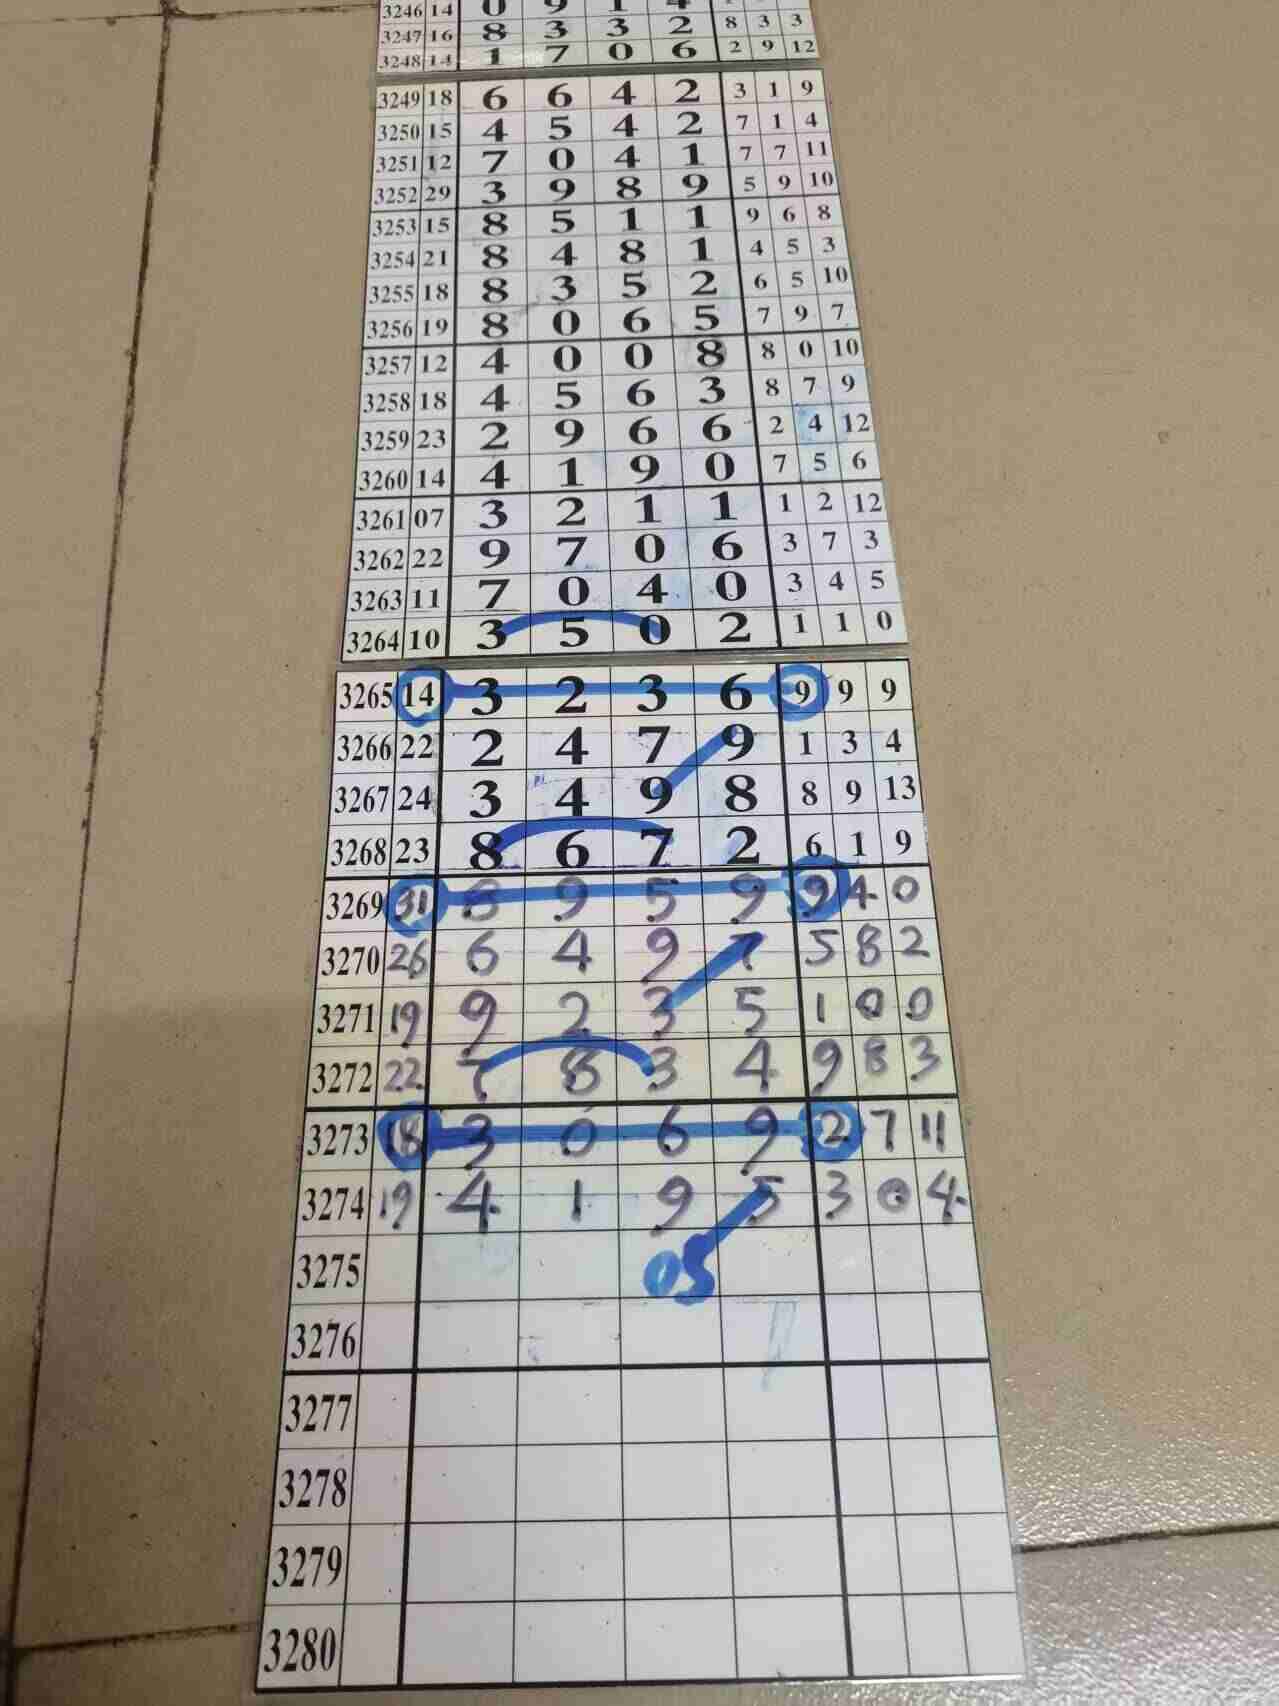 3246 14 0 9 1 4
3247 16 8 3 3 2 8 3 3
3248 14 1 7 0 6 2 9 12
3249 18 6 6 4 2 3 1 9
3250 15 4 5 4 2 7 1 4
3251 12 7 0 4 1 7 7 11
3252 29 3 9 8 9 5 9 10
3253 15 8 5 1 1 9 6 8
3254 21 8 4 8 1 4 5 3
3255 18 8 3 5 2 6 5 10
3256 19 8 0 6 5 7 9 7
3257 12 4 0 0 8 8 0 10
3258 18 4 5 6 3 8 7 9
3259 23 2 9 6 6 2 4 12
3260 14 4 1 9 0 7 5 6
3261 07 3 2 1 1 1 2 12
3262 22 9 7 0 6 3 7 3
3263 11 7 0 4 0 3 4 5
3264 10 3 5 0 2 1 1 0
3265 14 3 2 3 6 9 9 9
3266 22 2 4 7 9 1 3 4
3267 24 3 4 9 8 8 9 13
3268 23 8 6 7 2 6 1 9
3269 31 8 9 5 9 9 4 0
3270 26 6 4 9 7 5 8 2
3271 19 9 2 3 5 1 0 0
3272 22 7 8 3 4 9 8 3
3273 18 3 0 6 9 2 7 11
3274 19 4 1 9 5 3 0 4
3275 05
3276
3277
3278
3279
3280